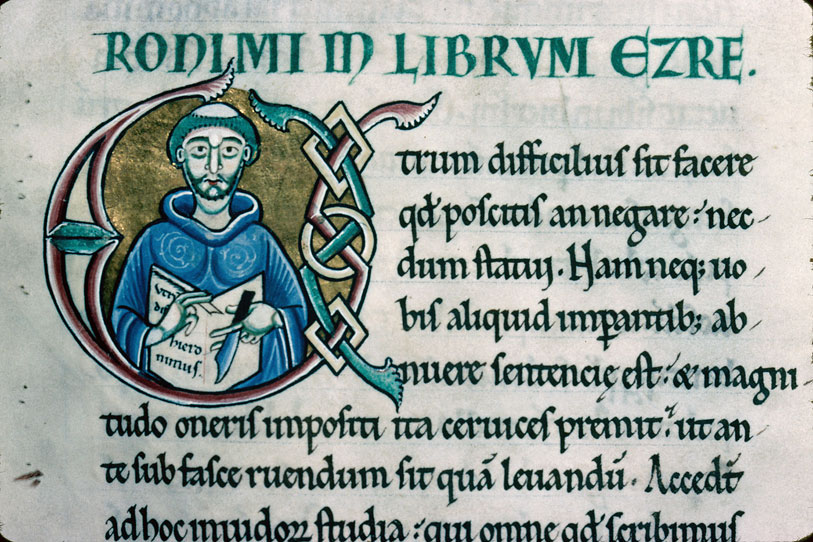 RONIMI IN LIBRVM EZRE.
trum difficilius sit facere
qđ poscitis an negare: nec
dum statui. Nam neq; uo
bis aliquid imꝑantib; ab
nuere sentencię est: & magni
tudo oneris impositi ita ceruices premit: ut an
te sub fasce ruendum sit quā leuandū. Accedt̄
ad hoc inuidoꝝ studia: qui omne qđ scribimus
Utru
hiero
nimus.